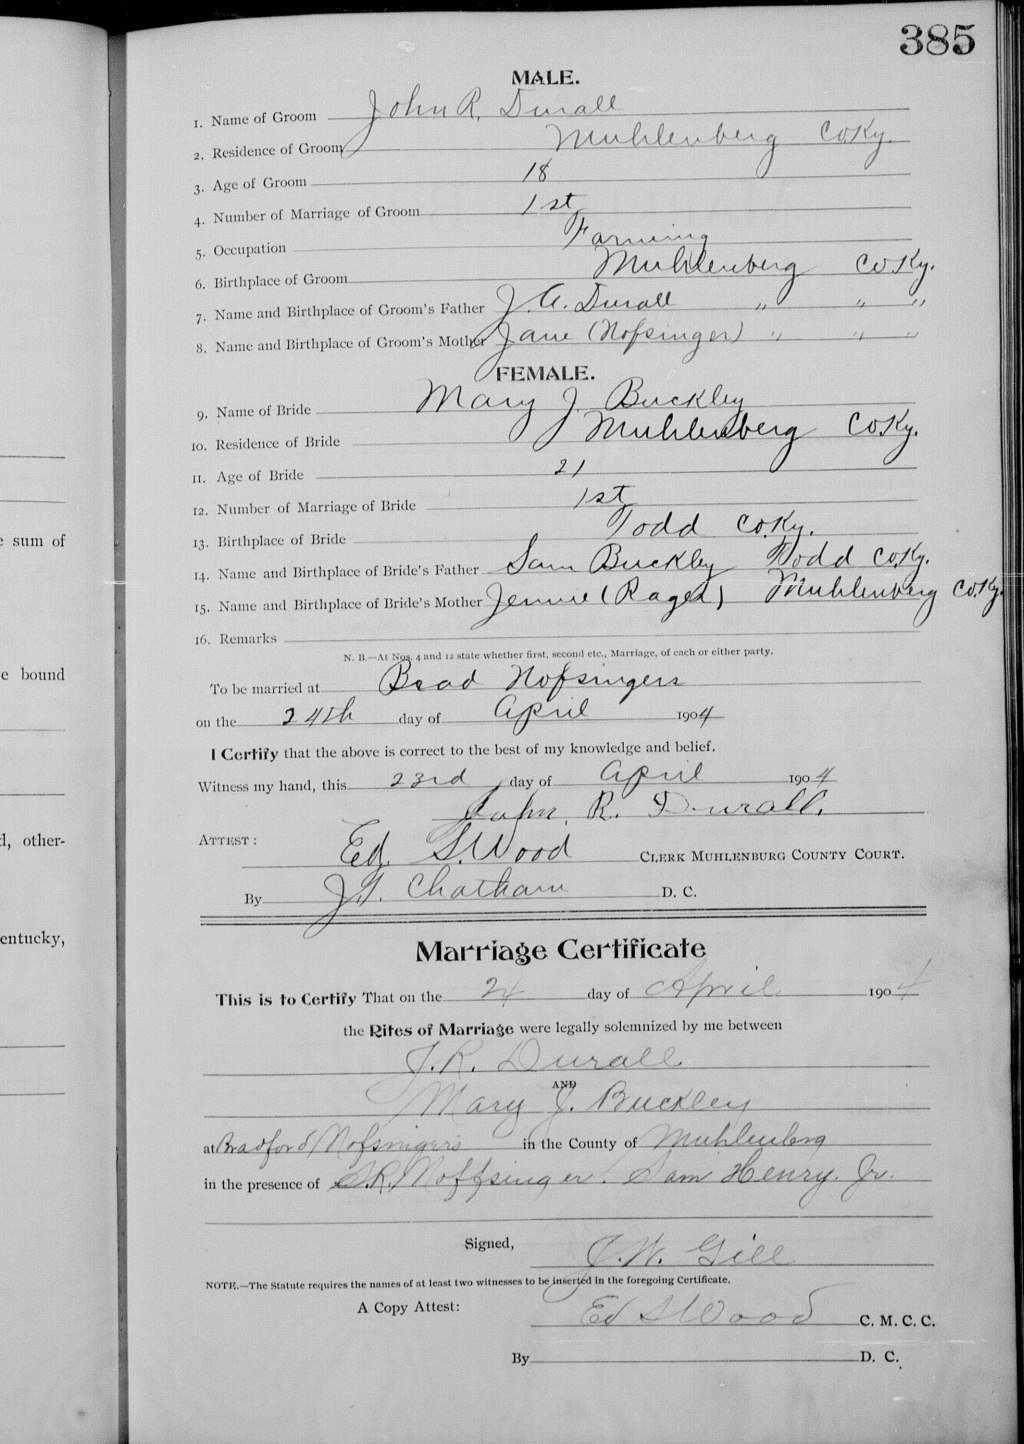 385
MALE.
1. Name of Groom John R. Durall
2. Residence of Groom Muhlenberg Co Ky.
3. Age of Groom 18
4. Number of Marriage of Groom 1st
5. Occupation Farming
6. Birthplace of Groom Muhlenberg Co. Ky.
7. Name and Birthplace of Groom's Father J. A. Durall " " "
8. Name and Birthplace of Groom's Mother Jane (Nofsinger) " " "
FEMALE.
9. Name of Bride Mary J. Buckley
10. Residence of Bride Muhlenberg Co Ky.
11. Age of Bride 21
12. Number of Marriage of Bride 1st
13. Birthplace of Bride Todd Co. Ky.
14. Name and Birthplace of Bride's Father Sam Buckley Todd Co. Ky.
15. Name and Birthplace of Bride's Mother Jennie (Rager) Muhlenberg Co. Ky.
16. Remarks
N. B.—At Nos. 4 and 12 state whether first, second etc., Marriage, of each or either party.
To be married at Brad Nofsingers
on the 24th day of April 1904
I Certify that the above is correct to the best of my knowledge and belief.
Witness my hand, this 23rd day of April 1904
John R. Durall.
ATTEST:
Ed. S. Wood CLERK MUHLENBURG COUNTY COURT.
By J. T. Chatham D. C.
Marriage Certificate
This is to Certify That on the 24 day of April 1904
the Rites of Marriage were legally solemnized by me between
J. R. Durall
AND
Mary J. Buckley
at Bradford Nofsinger's in the County of Muhlenberg
in the presence of S. R. Noffsinger. Sam Henry. Jr.
Signed,
J. W. Gill
NOTE.—The Statute requires the names of at least two witnesses to be inserted in the foregoing Certificate.
A Copy Attest:
Ed S Wood C. M. C. C.
By D. C.
e sum of
e bound
d, other-
entucky,